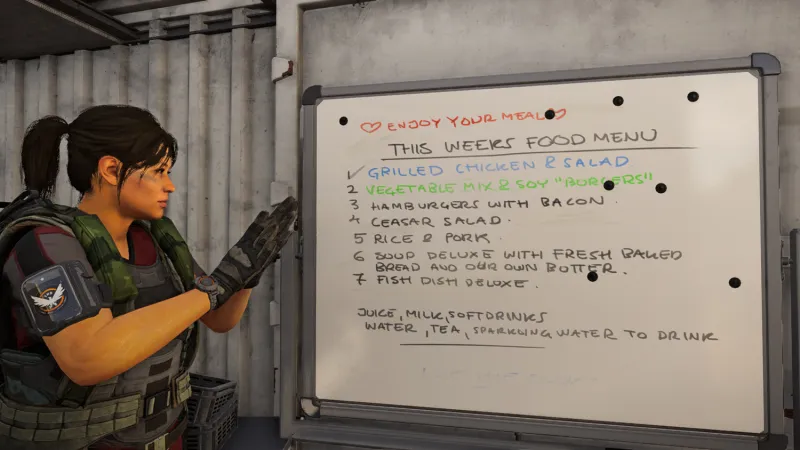 ENJOY YOUR MEAL
THIS WEEKS FOOD MENU
✓ GRILLED CHICKEN & SALAD
2 VEGETABLE MIX & SOY "BURGERS"
3 HAMBURGERS WITH BACON.
4 CEASAR SALAD.
5 RICE & PORK.
6 SOUP DELUXE WITH FRESH BAKED
BREAD AND OUR OWN BUTTER.
7 FISH DISH DELUXE.
JUICE, MILK, SOFTDRINKS
WATER, TEA, SPARKLING WATER TO DRINK